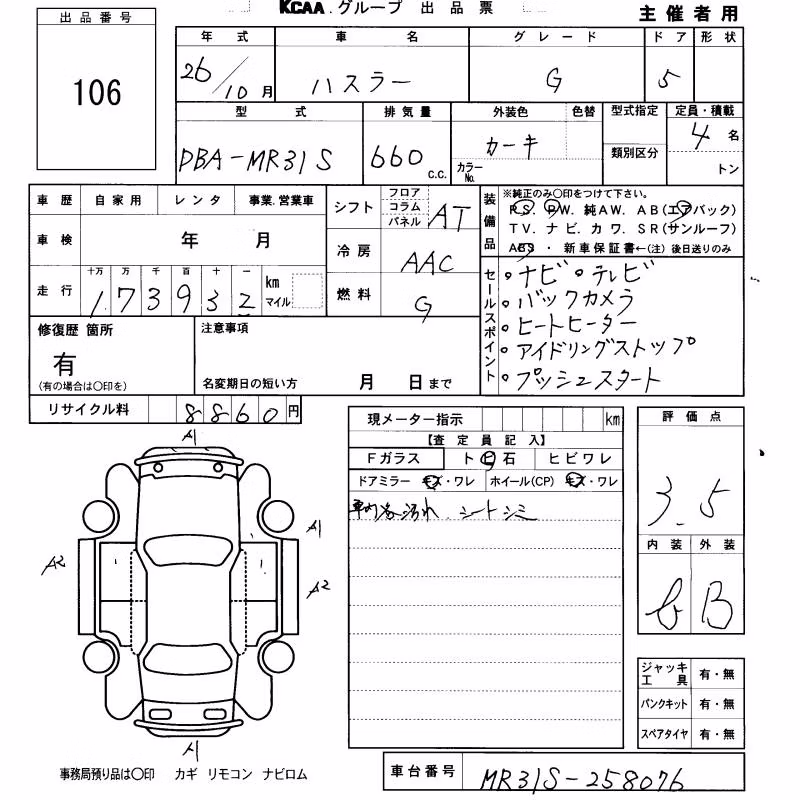 KCAA.グループ 出品票
主催者用
出品番号
106
年式 車名 グレード ドア 形状
26/10月 ハスラー G 5
型式 排気量 外装色 色替 型式指定 定員・積載
DBA-MR31S 660 c.c. カーキ カラーNo. 類別区分 4名
トン
車歴 自家用 レンタ 事業.営業車
車検 年 月
走行 十万 万 千 百 十 一
173932 km マイル
シフト フロア コラム パネル AT
冷房 AAC
燃料 G
装備品 ※純正のみ○印をつけて下さい。
PS. PW. 純AW. AB(エアバック)
TV. ナビ. カワ. SR(サンルーフ)
ABS ・新車保証書←(注)後日送りのみ
セールスポイント
・ナビ・テレビ
・バックカメラ
・ヒートヒーター
・アイドリングストップ
・プッシュスタート
修復歴 箇所
有
(有の場合は○印を)
注意事項
名変期日の短い方 月 日まで
リサイクル料 8860円
現メーター指示 km
【査定員記入】
Fガラス トビ石 ヒビワレ
ドアミラー キズ・ワレ ホイール(CP) キズ・ワレ
車内汚れ シートシミ
評価点
3.5
内装 外装
B
A1
A1
A2
A2
A1
ジャッキ工具 有・無
パンクキット 有・無
スペアタイヤ 有・無
事務局預り品は○印 カギ リモコン ナビロム
車台番号 MR31S-258076